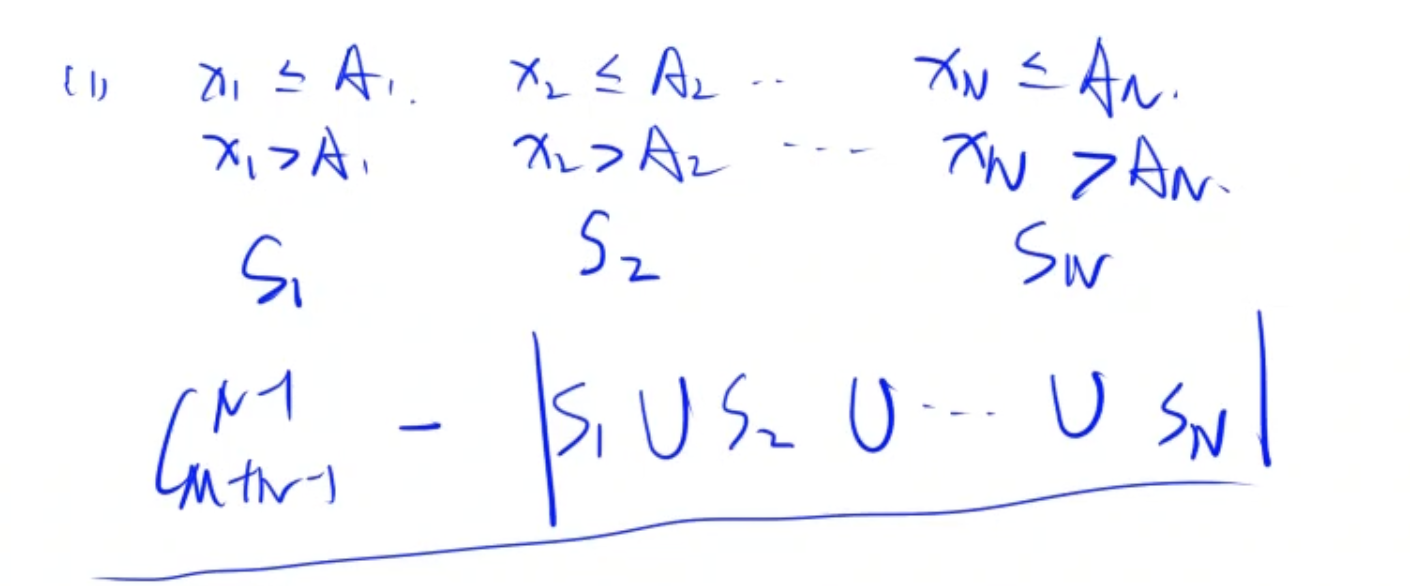 (1) x₁ ≤ A₁. x₂ ≤ A₂ ·· x_N ≤ A_N.
x₁ > A₁ x₂ > A₂ ···· x_N > A_N.
S₁ S₂ S_N
C_{M+N-1}^{N-1} - |S₁ ∪ S₂ ∪ ···· ∪ S_N|